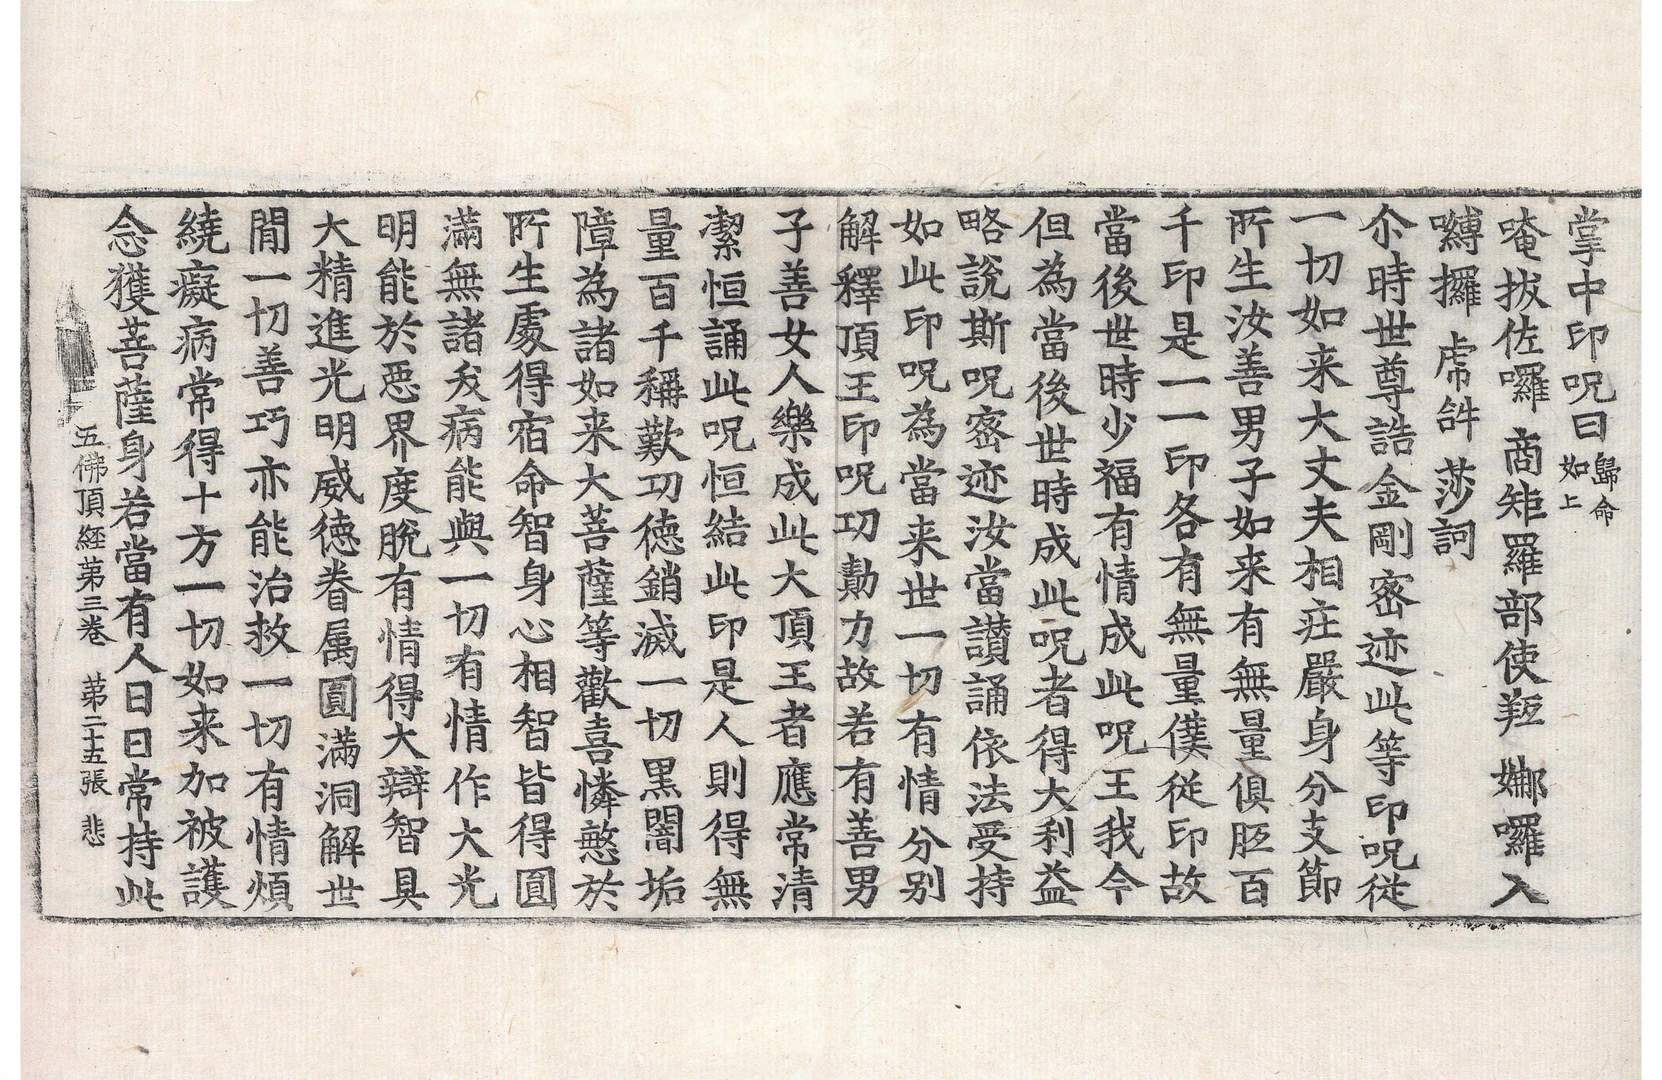 掌中印呪曰歸命如上
唵拔佐囉商矩羅部使羫娜囉入
嚩攞虎𤙖莎訶
尒時世尊誥金剛密迹此等印呪從
一切如来大丈夫相庄嚴身分支節
所生汝善男子如来有無量俱胝百
千印是一一印各有無量僕從印故
當後世時少福有情成此呪王我今
但為當後世時成此呪者得大利益
略說斯呪密迹汝當讃誦依法受持
如此印呪為當来世一切有情分别
解釋頂王印呪功勲力故若有善男
子善女人樂成此大頂王者應常清
潔恒誦此呪恒結此印是人則得無
量百千稱歎功德銷滅一切黑闇垢
障為諸如来大菩薩等歡喜憐愍於
所生處得宿命智身心相智皆得圓
滿無諸疾病能與一切有情作大光
明能於惡界度脫有情得大辯智具
大精進光明威德眷属圓滿洞解世
間一切善巧亦能治救一切有情煩
繞癡病常得十方一切如来加被護
念獲菩薩身若當有人日日常持此
五佛頂經第三卷　第二十五張　悲